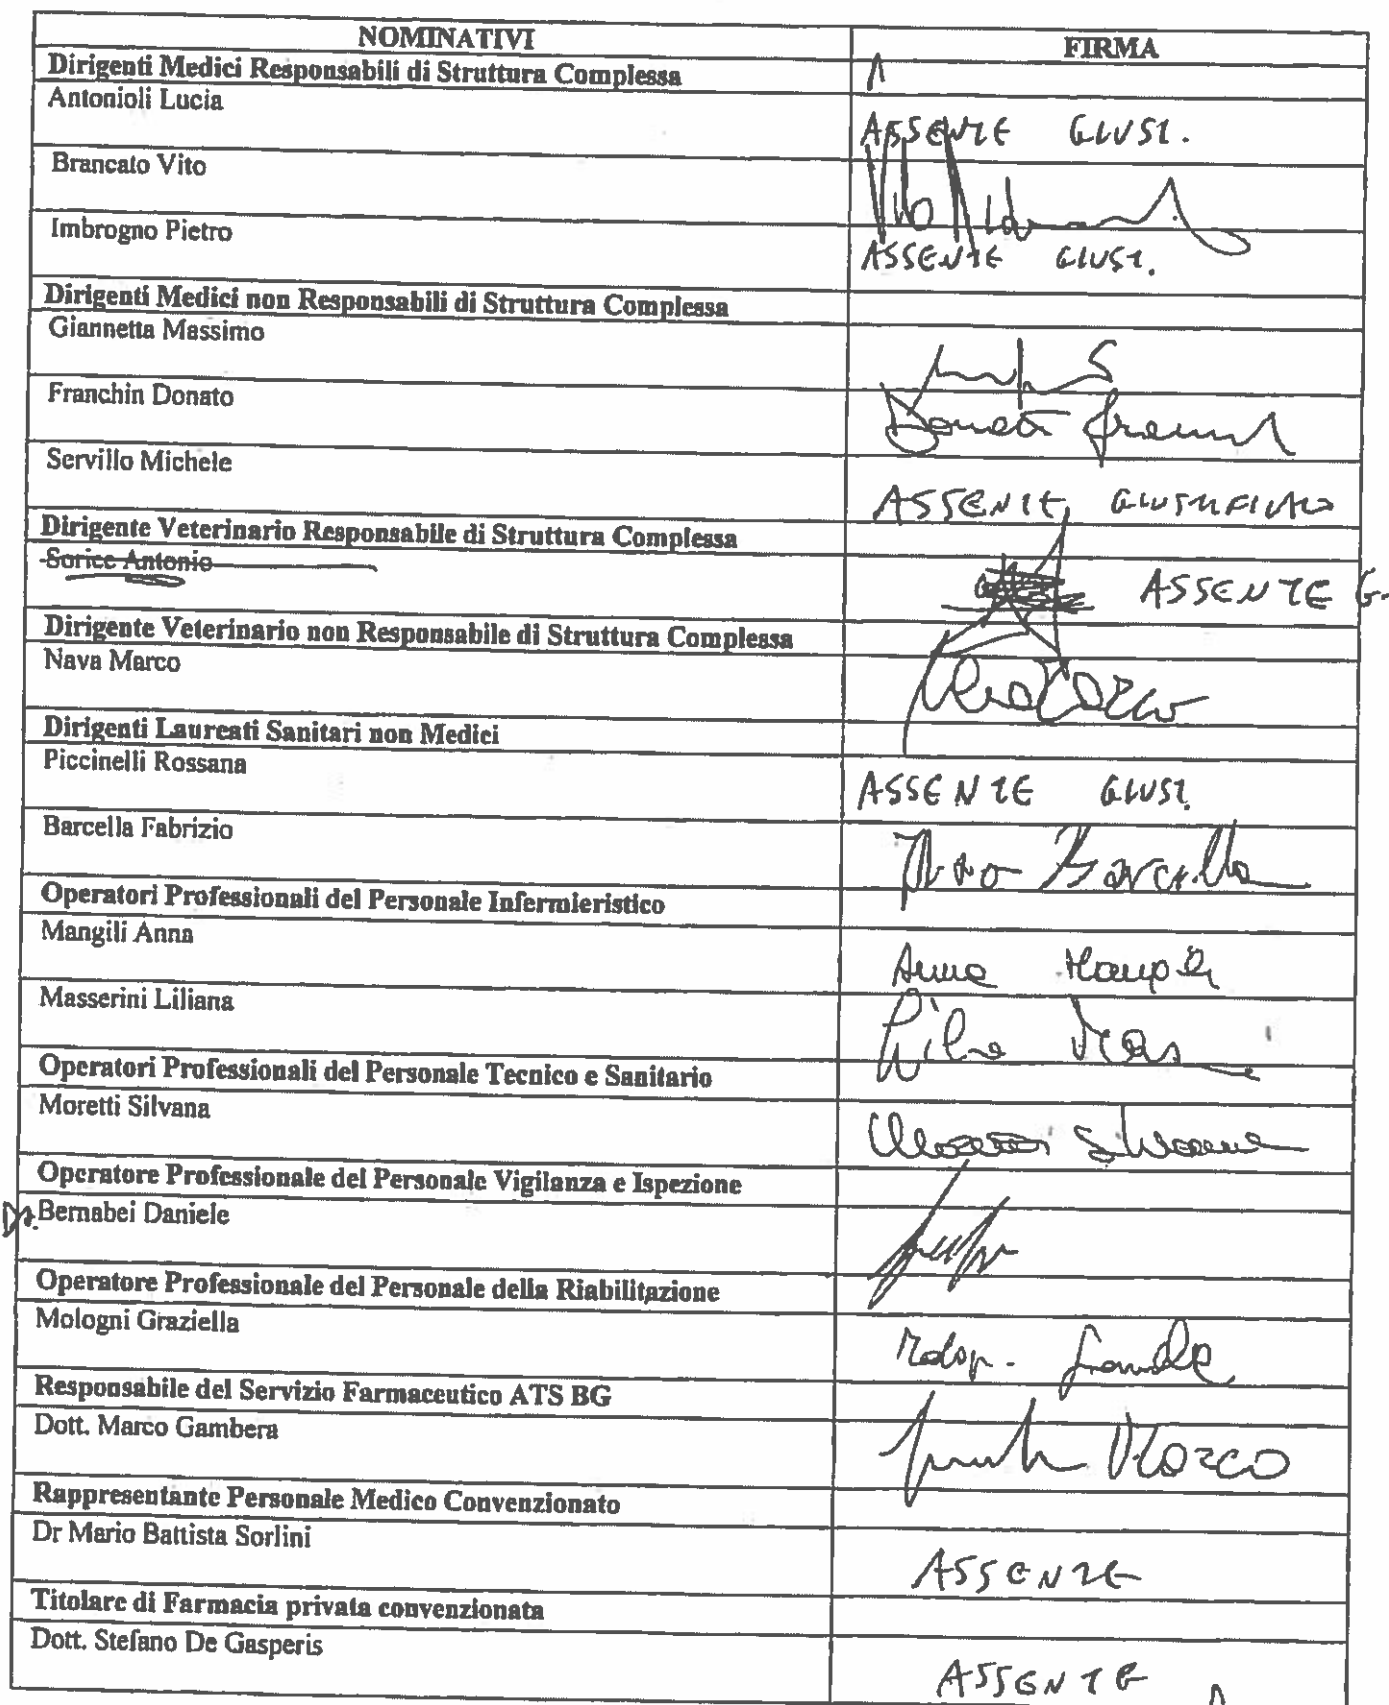 NOMINATIVI FIRMA
Dirigenti Medici Responsabili di Struttura Complessa
Antonioli Lucia ASSENTE GIUST.
Brancato Vito Vito
Imbrogno Pietro ASSENTE GIUST.
Dirigenti Medici non Responsabili di Struttura Complessa
Giannetta Massimo
Franchin Donato Donato
Servillo Michele ASSENTE GIUSTIFICATO
Dirigente Veterinario Responsabile di Struttura Complessa
Sorice Antonio ASSENTE G.
Dirigente Veterinario non Responsabile di Struttura Complessa
Nava Marco
Dirigenti Laureati Sanitari non Medici
Piccinelli Rossana ASSENTE GIUST.
Barcella Fabrizio Barcella
Operatori Professionali del Personale Infermieristico
Mangili Anna Anna Mangili
Masserini Liliana
Operatori Professionali del Personale Tecnico e Sanitario
Moretti Silvana Moretti Silvana
Operatore Professionale del Personale Vigilanza e Ispezione
Bernabei Daniele
Operatore Professionale del Personale della Riabilitazione
Mologni Graziella
Responsabile del Servizio Farmaceutico ATS BG
Dott. Marco Gambera Marco
Rappresentante Personale Medico Convenzionato
Dr Mario Battista Sorlini ASSENTE
Titolare di Farmacia privata convenzionata
Dott. Stefano De Gasperis ASSENTE